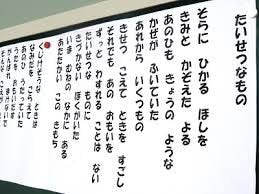 たいせつなもの
そらに ひかる ほしを
きみと かぞえた よる
あのひも きょうの ような
かぜが ふいていた
あれから いくつもの
きせつ こえて ときを すごし
それでも あの おもいを
ずっと わすれる ことは ない
たいせつな ものに
きづかない ぼくがいた
いま むねの なかに ある
あたたかい この きもち
くじけそうな ときは
なみだを こらえて
あのひ うたっていた